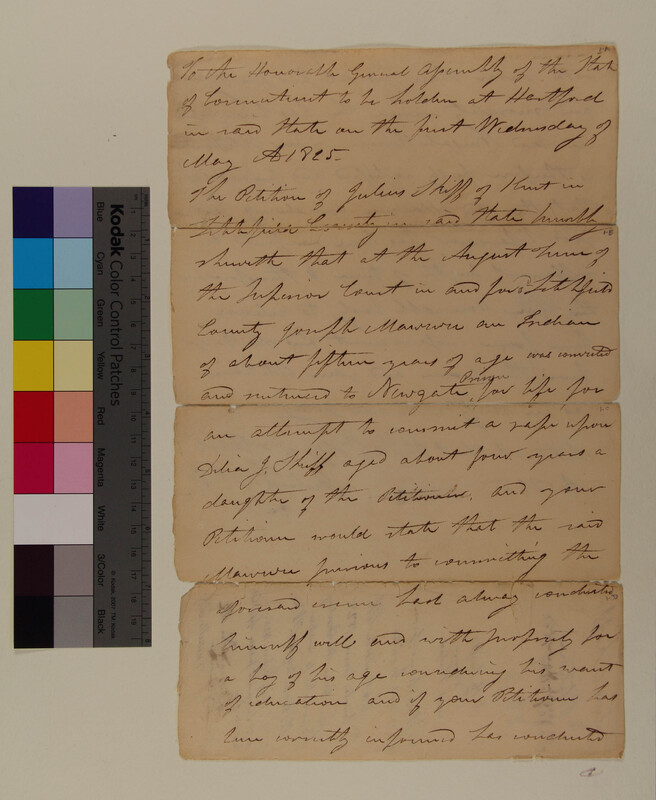 To the Honorable General Assembly of the State
of Connecticut to be holden at Hartford
in said State on the first Wednesday of
May AD 1825.
The Petition of Julius Skiff of Kent in
Litchfield County in said State humbly
sheweth that at the August Term of
the Superior Court in and for Litchfield
County Joseph Mawwee an Indian
of about fifteen years of age was convicted
and sentenced to Newgate Prison for life for
an attempt to commit a rape upon
Delia J. Skiff aged about four years a
daughter of the Petitioner. and your
Petitioner would state that the said
Mawwee previous to committing the
aforesaid crime had alway conducted
himself well and with propriety for
a boy of his age considering his want
of education and if your Petitioner has
been correctly informed has conducted
Kodak Color Control Patches
Blue
Cyan
Green
Yellow
Red
Magenta
White
3/Color
Black